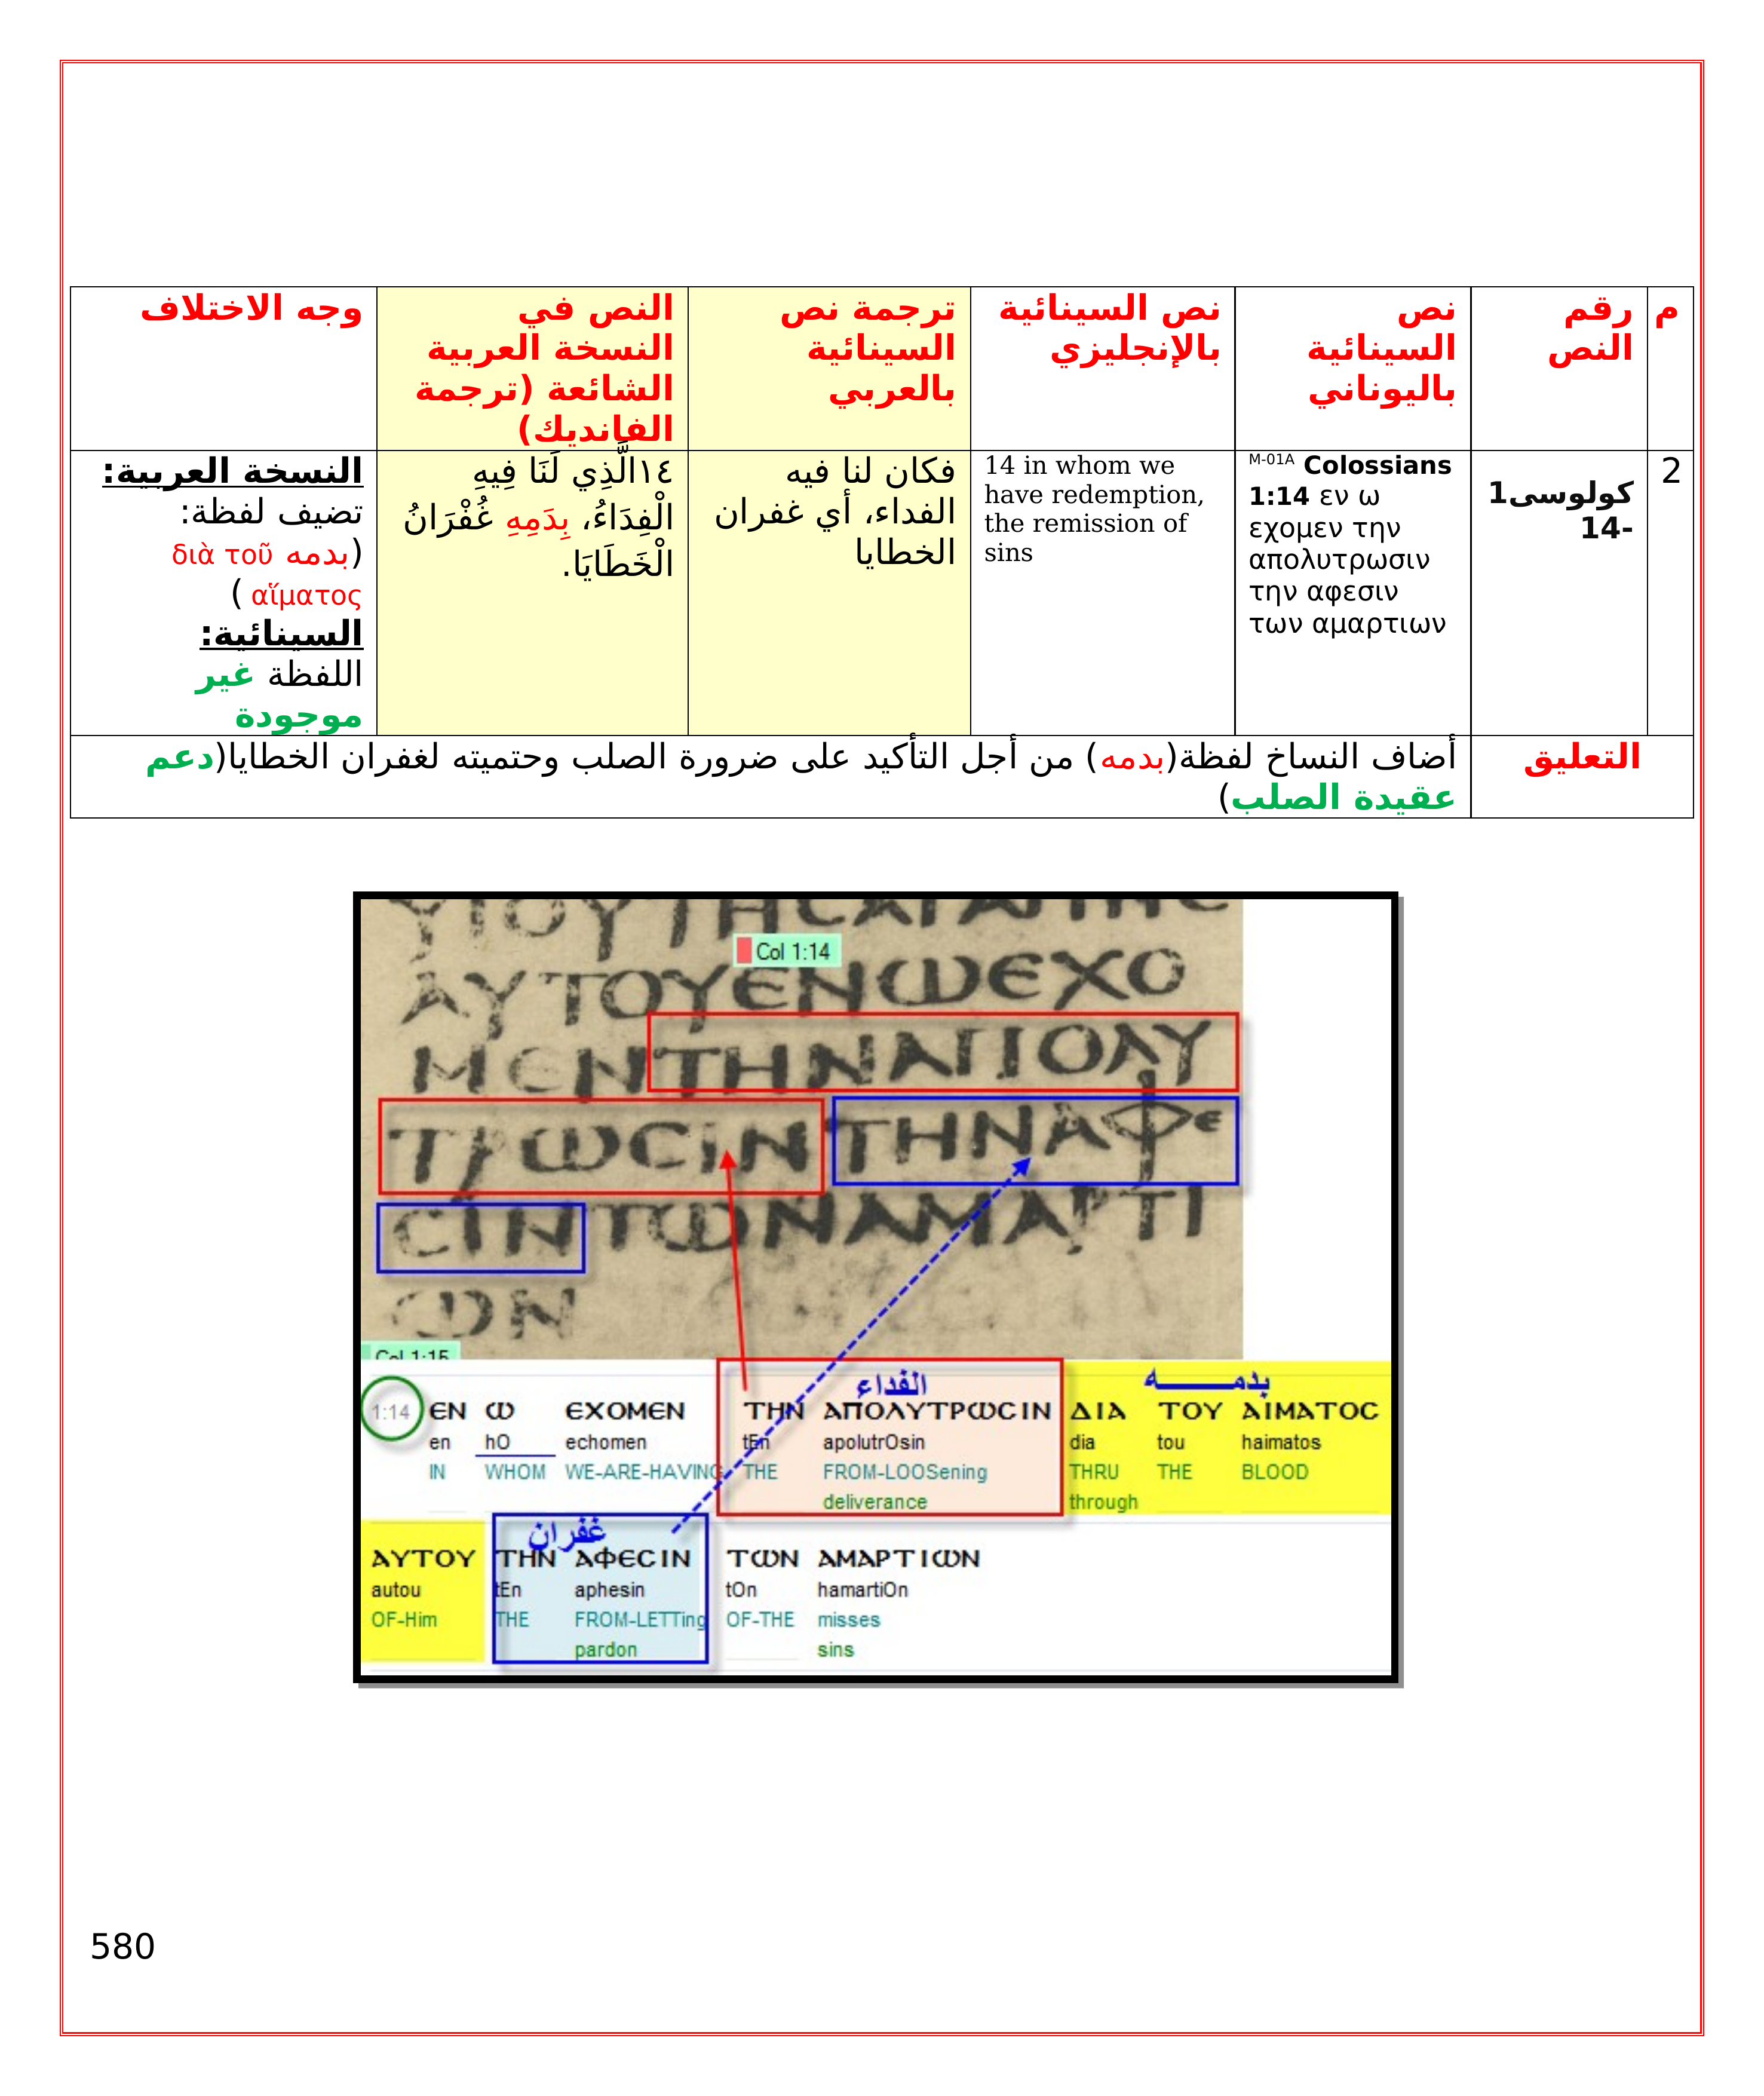 م
رقم
النص
نص
السينائية
باليوناني
نص السينائية
بالإنجليزي
ترجمة نص
السينائية
بالعربي
النص في
النسخة العربية
الشائعة (ترجمة
الفانديك)
وجه الاختلاف
2
كولوسى1
-14
M-01A Colossians
1:14 εν ω
εχομεν την
απολυτρωσιν
την αφεσιν
των αμαρτιων
14 in whom we
have redemption,
the remission of
sins
فكان لنا فيه
الفداء، أي غفران
الخطايا
١٤الَّذِي لَنَا فِيهِ
الْفِدَاءُ، بِدَمِهِ غُفْرَانُ
الْخَطَايَا.
النسخة العربية:
تضيف لفظة:
(بدمه διὰ τοῦ
αἵματος )
السينائية:
اللفظة غير
موجودة
التعليق
أضاف النساخ لفظة(بدمه) من أجل التأكيد على ضرورة الصلب وحتميته لغفران الخطايا(دعم
عقيدة الصلب)
ΥΙΟΥΤΗϹΑΓΑΠΗϹ
Col 1:14
ΑΥΤΟΥΕΝΩΕΧΟ
ΜΕΝΤΗΝΑΠΟΛΥ
ΤΡΩϹΙΝΤΗΝΑΦΕ
ϹΙΝΤΩΝΑΜΑΡΤΙ
ΩΝ
Col 1:15
الفداء بدمـــــه
1:14 ΕΝ Ω ΕΧΟΜΕΝ ΤΗΝ ΑΠΟΛΥΤΡΩϹΙΝ ΔΙΑ ΤΟΥ ΑΙΜΑΤΟϹ
en hO echomen tEn apolutrOsin dia tou haimatos
IN WHOM WE-ARE-HAVING THE FROM-LOOSening THRU THE BLOOD
deliverance through
غفران
ΑΥΤΟΥ ΤΗΝ ΑΦΕϹΙΝ ΤΩΝ ΑΜΑΡΤΙΩΝ
autou tEn aphesin tOn hamartiOn
OF-Him THE FROM-LETTing OF-THE misses
pardon sins
580